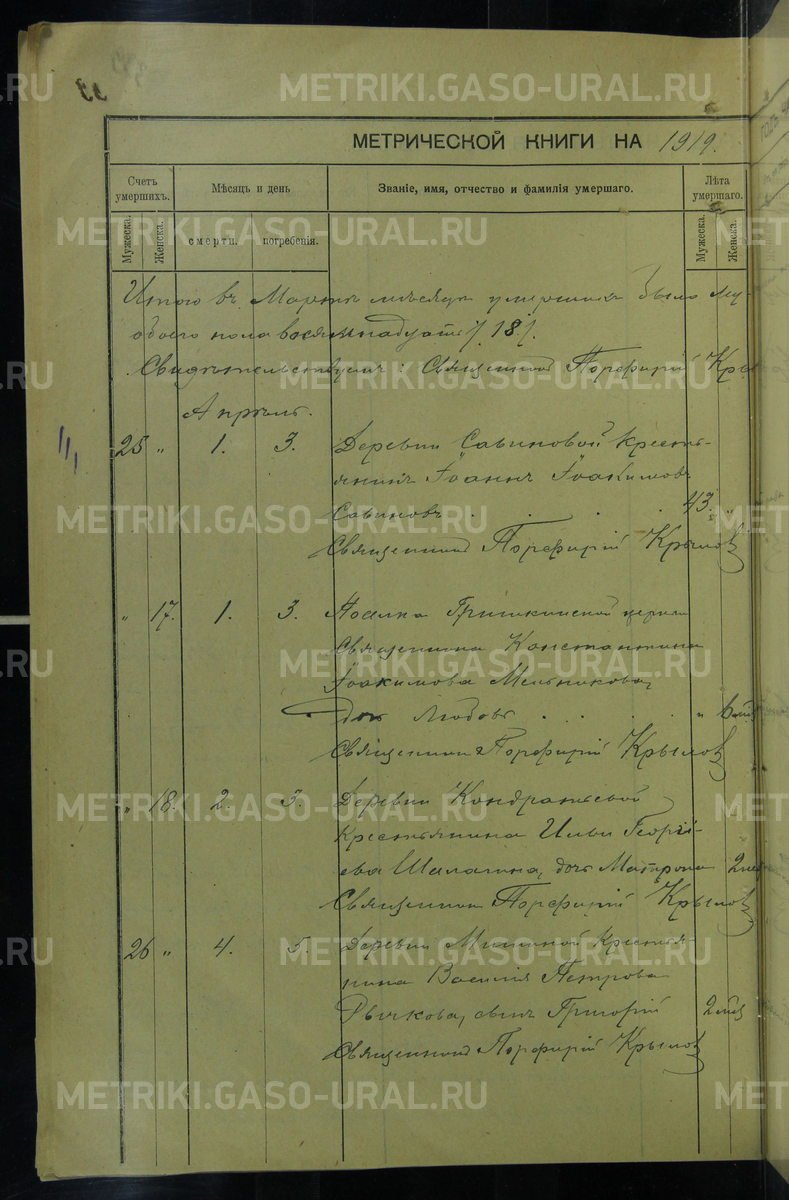 МЕТРИЧЕСКОЙ КНИГИ НА 1919.
Счетъ умершихъ.
Мѣсяцъ и день
Званіе, имя, отчество и фамилія умершаго.
Лѣта умершаго.
Мужеска.
Женска.
смерти.
погребенія.
Мужеска.
Женска.
Итого въ Мартѣ мѣсяцѣ умершихъ было му-
обоего пола восемнадцать /18/.
Свидѣтельствуемъ: Священникъ Порфирій Кры
Апрѣль.
25 " 1. 3. Деревни Савиновой крестья-
янинъ Іоаннъ Іоакимовъ
Савиновъ . . . . 43. "
Священникъ Порфирій Крыловъ
" 17. 1. 3. Поселка Гришкинской церкви
Священника Константина
Іоакимова Мельникова,
дочь Любовь . . . . " 6
Священникъ Порфирій Крыловъ
" 18. 2. 3. Деревни Кондратьевой
крестьянина Ильи Георгі-
ева Шалагина, дочь Матрона 2
Священникъ Порфирій Крыловъ
26 " 4. 5. Деревни Мишиной крестья-
нина Василія Петрова
Рычкова, сынъ Григорій 2
Священникъ Порфирій Крыловъ
METRIKI.GASO-URAL.RU